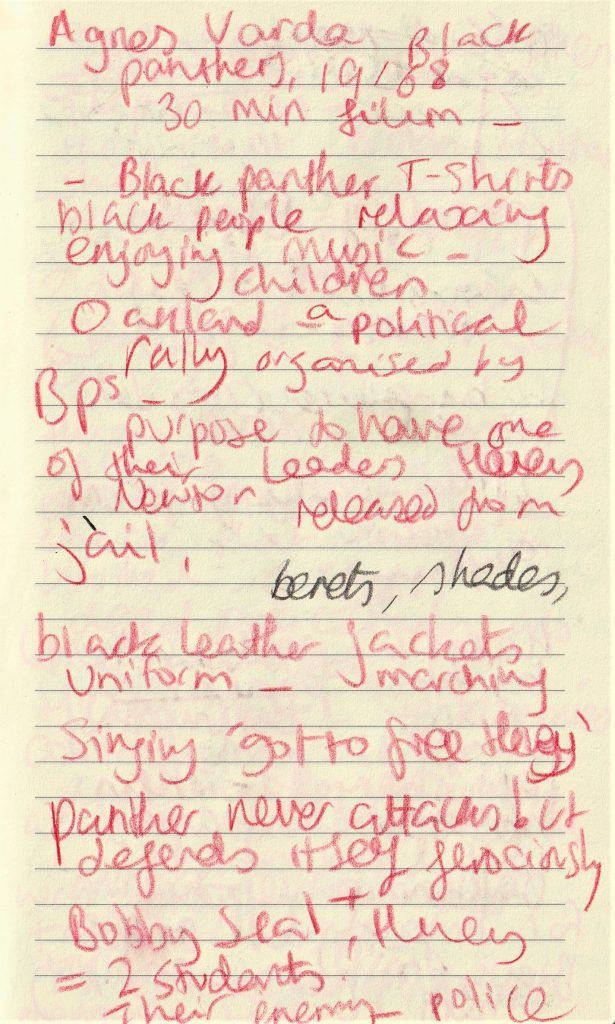 Agnes Varda Black
panthers, 1968
30 min film –
– Black panther T-Shirts
black people relaxing
enjoying music –
children
Oakland – a political
rally organised by
Bps –
purpose to have one
of their Leaders Huey
Newton released from
jail.
berets, shades,
black leather jackets
uniform – marching
Singing 'got to free Huey'
panther never attacks but
defends itself ferociously
Bobby Seal + Huey
= 2 students.
Their enemy – police